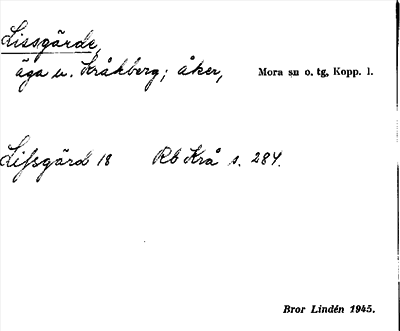 Lissgärde,
äga u. Kråkberg; åker, Mora sn o. tg, Kopp. l.
Lifsgärd 18 Rb Krå s. 284.
Bror Lindén 1945.